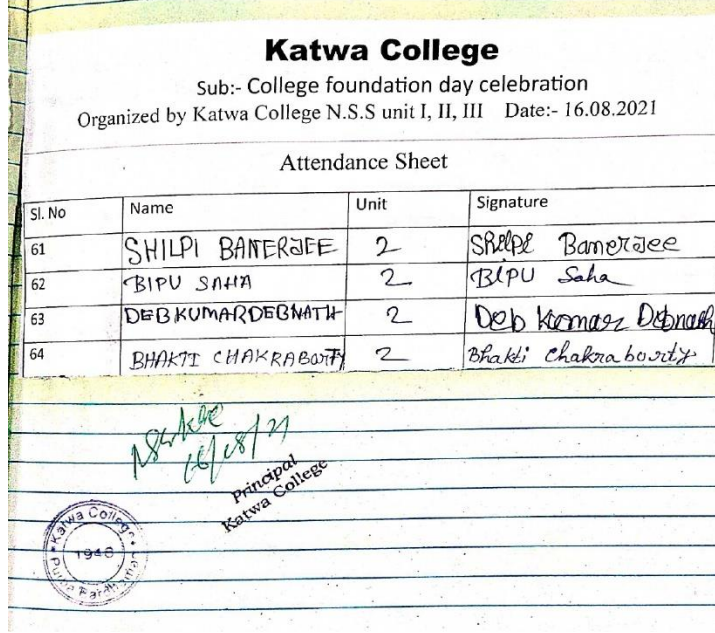 Katwa College
Sub:- College foundation day celebration
Organized by Katwa College N.S.S unit I, II, III Date:- 16.08.2021
Attendance Sheet
Sl. No Name Unit Signature
61 SHILPI BANERJEE 2 Shilpi Banerjee
62 BIPU SAHA 2 BIPU Saha
63 DEBKUMARDEBNATH 2 Deb Kumar Debnath
64 BHAKTI CHAKRABORTY 2 Bhakti Chakraborty
16/08/21
Principal
Katwa College
Katwa College
1948
Purba Bardhaman